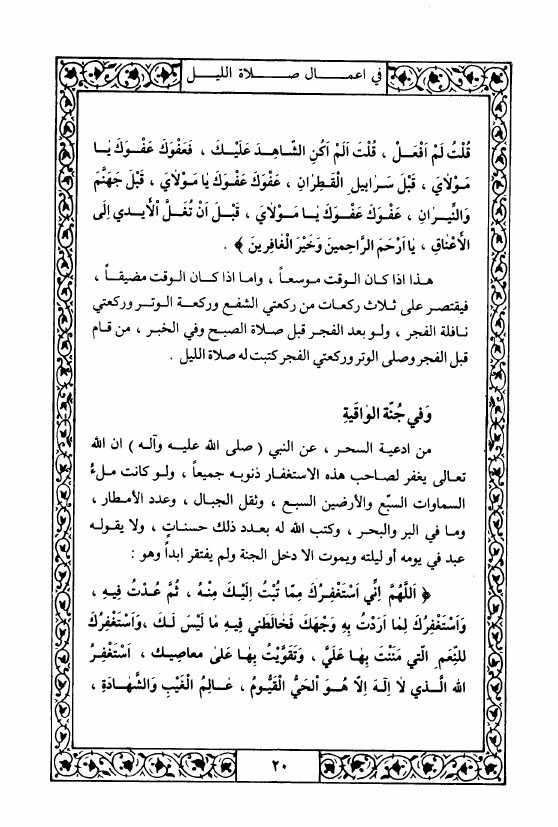 في اعمـــال صـــلاة الليـــل
قُلْتُ لَمْ اَفْعَلْ ، قُلْتَ اَلَمْ اَكُنِ الشّاهِدَ عَلَيْكَ ، فَعَفْوَكَ عَفْوَكَ يٰا
مَوْلاٰيَ ، قَبْلَ سَرٰابيلِ الْقَطِرٰانِ ، عَفْوَكَ عَفْوَكَ يٰا مَوْلاٰيَ ، قَبْلَ جَهَنَّمَ
وَالنّيرٰانِ ، عَفْوَكَ عَفْوَكَ يٰا مَوْلاٰيَ ، قَبْلَ اَنْ تُغَلَّ الْأَيدي اِلَى
الْأَعْنٰاقِ ، يٰا اَرْحَمَ الرّاحِمينَ وَخَيْرَ الْغٰافِرينَ ﴾ .
هذا اذا كان الوقت موسعاً ، واما اذا كان الوقت مضيقاً ،
فيقتصر على ثلاث ركعات من ركعتي الشفع وركعة الوتر وركعتي
نافلة الفجر ، ولو بعد الفجر قبل صلاة الصبح وفي الخبر ، من قام
قبل الفجر وصلى الوتر وركعتي الفجر كتبت له صلاة الليل .
وَفي جُنّة الوٰاقيَةِ
من ادعية السحر ، عن النبي ( صلى الله عليه وآله ) ان الله
تعالى يغفر لصاحب هذه الاستغفار ذنوبه جميعاً ، ولو كانت ملءُ
السماوات السبّع والأرضين السبع ، وثقل الجبال ، وعدد الأمطار ،
وما في البر والبحر ، وكتب الله له بعدد ذلك حسناتٍ ، ولا يقوله
عبد في يومه أو ليلته ويموت الا دخل الجنة ولم يفتقر ابداً وهو :
﴿ اَللّهُمَّ اِنّي اَسْتَغْفِرُكَ مِمّا تُبْتُ اِلَيْكَ مِنْهُ ، ثُمَّ عُدْتُ فيهِ ،
وَاَسْتَغْفِرُكَ لِمٰا اَرَدْتُ بِهِ وَجْهَكَ فَخٰالَطَني فيهِ مٰا لَيْسَ لَكَ ،وَاَسْتَغْفِرُكَ
للنِعَمِ الّتي مَنَنْتَ بِهٰا عَلَيَّ ، وَتَقَوَّيْتُ بِهٰا عَلىٰ معاصيك ، اَسْتَغْفِرُ
الله الَّذي لاٰ اِلٰهَ اِلاّ هُوَ اَلْحَيُّ الْقَيُّومُ ، عٰالِمُ الْغَيْبِ وَالشَّهٰادَةِ ،
٢٠